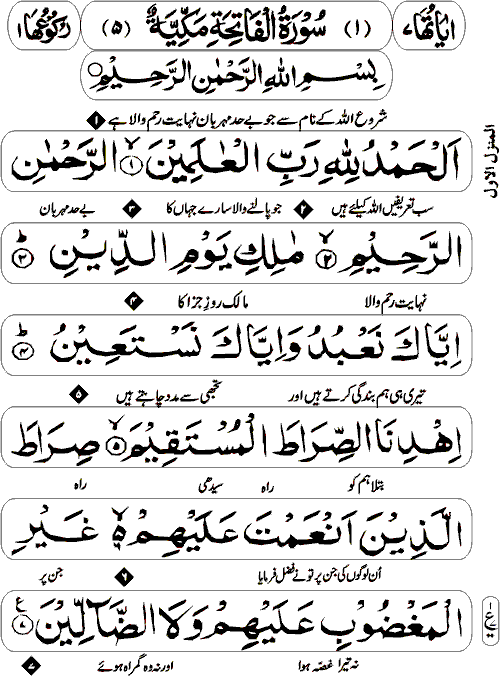 اٰيَاتُهَا ٧ (١) سُوْرَةُ الْفَاتِحَةِ مَكِّيَّةٌ (٥) رُكُوْعُهَا ١
بِسْمِ اللهِ الرَّحْمٰنِ الرَّحِيْمِ
شروع اللہ کے نام سے جو بے حد مہربان نہایت رحم والا ہے ۱
اَلْحَمْدُ لِلّٰهِ رَبِّ الْعٰلَمِيْنَ ۙ﴿١﴾ الرَّحْمٰنِ
سب تعریفیں اللہ کیلئے ہیں ۲ جو پالنے والا سارے جہاں کا ۳ بے حد مہربان
الرَّحِيْمِ ۙ﴿٢﴾ مٰلِكِ يَوْمِ الدِّيْنِ ؕ﴿٣﴾
نہایت رحم والا مالک روزِ جزا کا ۴
اِيَّاكَ نَعْبُدُ وَاِيَّاكَ نَسْتَعِيْنُ ؕ﴿٤﴾
تیری ہی ہم بندگی کرتے ہیں اور تجھی سے مدد چاہتے ہیں ۵
اِهْدِنَا الصِّرَاطَ الْمُسْتَقِيْمَ ۙ﴿٥﴾ صِرَاطَ
بتلا ہم کو راہ سیدھی راہ
الَّذِيْنَ اَنْعَمْتَ عَلَيْهِمْ ۙ۬ غَيْرِ
اُن لوگوں کی جن پر تو نے فضل فرمایا ۶ جن پر
الْمَغْضُوْبِ عَلَيْهِمْ وَلَا الضَّآلِّيْنَ ﴿٧﴾ ع
نہ تیرا غصہ ہوا اور نہ وہ گمراہ ہوئے ۷
المنزل الاول